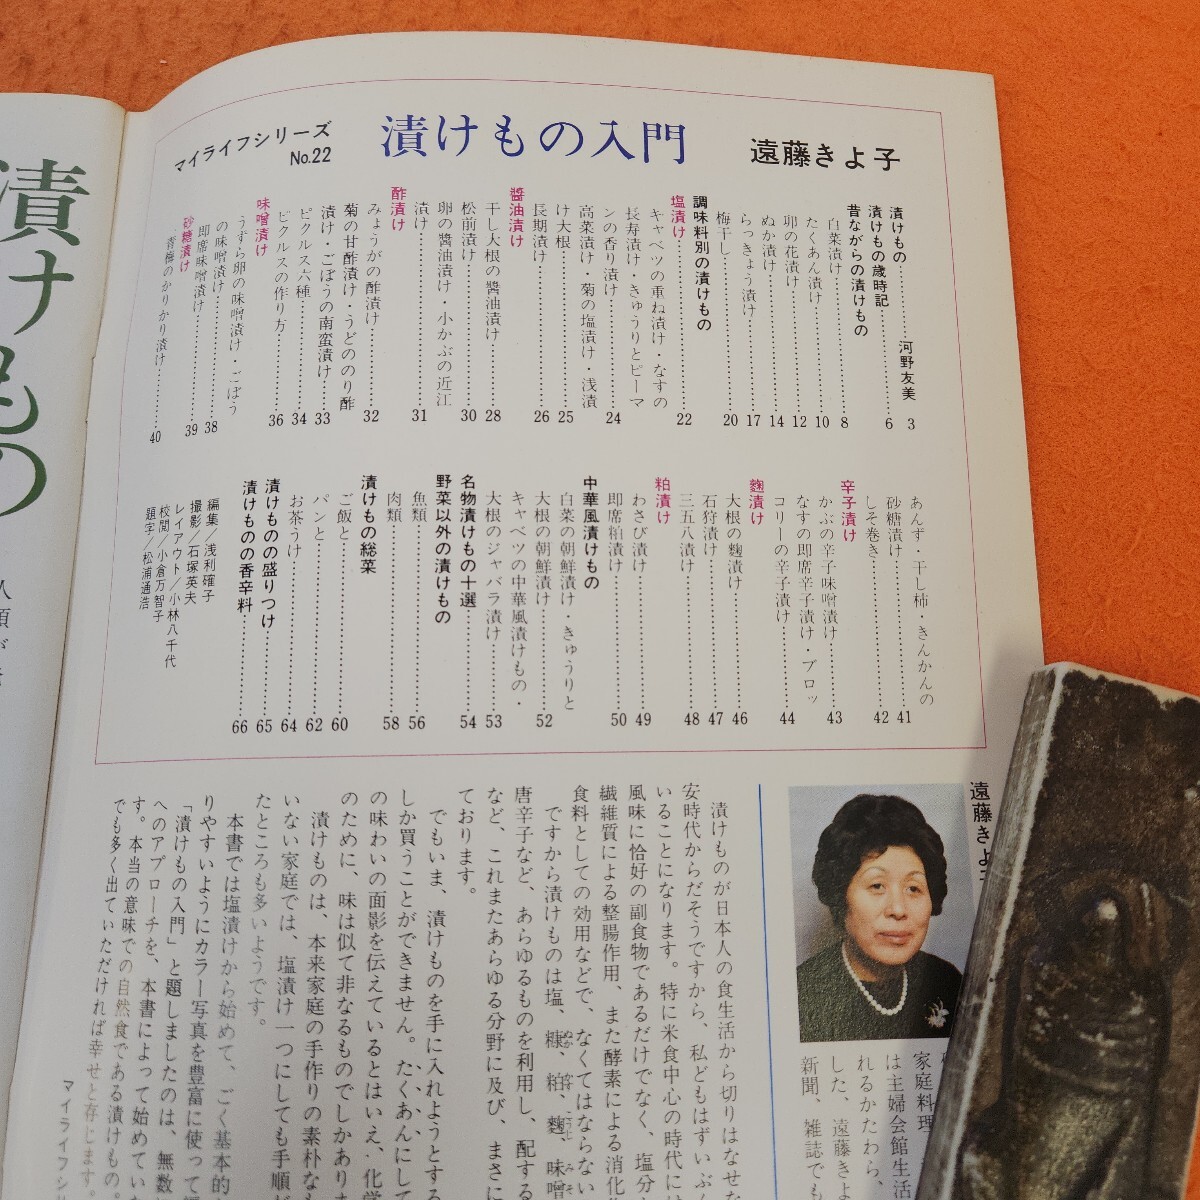 マイライフシリーズ
No.22
漬けもの入門
遠藤きよ子
漬けもの……河野友美 3
漬けもの歳時記……6
昔ながらの漬けもの
白菜漬け……8
たくあん漬け……10
卯の花漬け……12
ぬか漬け……14
らっきょう漬け……17
梅干し……20
調味料別の漬けもの
塩漬け……22
キャベツの重ね漬け・なすの
長寿漬け・きゅうりとピーマ
ンの香り漬け……24
高菜漬け・菊の塩漬け・浅漬
け大根……25
長期漬け……26
醬油漬け
干し大根の醬油漬け……28
松前漬け……30
卵の醬油漬け・小かぶの近江
漬け……31
酢漬け
みょうがの酢漬け……32
菊の甘酢漬け・うどののり酢
漬け・ごぼうの南蛮漬け……33
ピクルス六種……34
ピクルスの作り方……36
味噌漬け
うずら卵の味噌漬け・ごぼう
の味噌漬け……38
即席味噌漬け……39
砂糖漬け
青梅のかりかり漬け……40
あんず・干し柿・きんかんの
砂糖漬け……41
しそ巻き……42
辛子漬け
かぶの辛子味噌漬け……43
なすの即席辛子漬け・ブロッ
コリーの辛子漬け……44
麴漬け
大根の麴漬け……46
石狩漬け……47
三五八漬け……48
粕漬け
わさび漬け……49
即席粕漬け……50
中華風漬けもの
白菜の朝鮮漬け・きゅうりと
大根の朝鮮漬け……52
キャベツの中華風漬けもの・
大根のジャバラ漬け……53
名物漬けもの十選……54
野菜以外の漬けもの
魚類……56
肉類……58
漬けもの総菜
ご飯と……60
パンと……62
お茶うけ……64
漬けものの盛りつけ……65
漬けものの香辛料……66
編集／浅利確子
撮影／石塚英夫
レイアウト／小林八千代
校閲／小倉万智子
題字／松浦通浩
遠藤きよ
家庭料理
は主婦会館生活
れるかたわら、
した、遠藤きよ
新聞、雑誌でも
漬けものが日本人の食生活から切りはなせな
安時代からだそうですから、私どもはずいぶん
いることになります。特に米食中心の時代には
風味に恰好の副食物であるだけでなく、塩分
繊維質による整腸作用、また酵素による消化
食料としての効用などで、なくてはならない
ですから漬けものは塩、糠、粕、麴、味噌
唐辛子など、あらゆるものを利用し、配する
など、これまたあらゆる分野に及び、まさに
ております。
でもいま、漬けものを手に入れようとする
しか買うことができません。たくあんにして
の味わいの面影を伝えているとはいえ、化学
のために、味は似て非なるものでしかありま
漬けものは、本来家庭の手作りの素朴なも
いない家庭では、塩漬け一つにしても手順が
たところも多いようです。
本書では塩漬けから始めて、ごく基本的
りやすいようにカラー写真を豊富に使って
「漬けもの入門」と題しましたのは、無数
へのアプローチを、本書によって始めていた
す。本当の意味での自然食である漬けもの。
でも多く出ていただければ幸せと存じます。
マイライフシリ
漬けもの
人類が